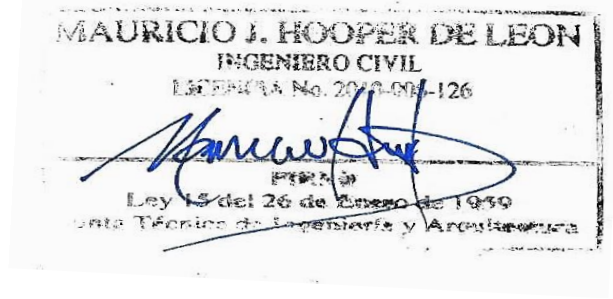 MAURICIO J. HOOPER DE LEON
INGENIERO CIVIL
LICENCIA No. 2010-006-126
FIRMA
Ley 15 del 26 de Enero de 1959
unta Técnica de Ingeniería y Arquitectura